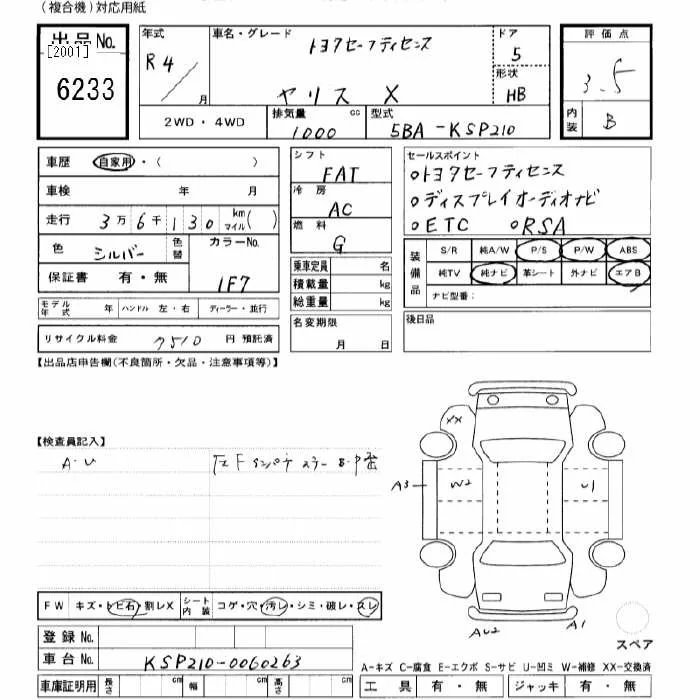 (複合機)対応用紙
出品No.
[2001]
6233
年式
R4/月
車名・グレード
トヨタセーフティセンス
ヤリス X
ドア
5
形状
HB
評価点
3.5
内装
B
2WD・4WD
排気量 cc
1000
型式
5BA-KSP210
車歴 自家用・( )
車検 年 月
走行 3万6千130 km マイル( )
色 シルバー 色替
カラーNo.
1F7
保証書 有・無
モデル年式 年 ハンドル 左・右 ディーラー・並行
リサイクル料金 7510 円 預託済
シフト
FAT
冷房
AC
燃料
G
乗車定員 名
積載量 kg
総重量 kg
名変期限
月 日
セールスポイント
oトヨタセーフティセンス
oディスプレイオーディオナビ
oETC oRSA
装備品
S/R 純A/W P/S P/W ABS
純TV 純ナビ 革シート 外ナビ エアB
ナビ型番:
後日品
【出品店申告欄(不良箇所・欠品・注意事項等)】
【検査員記入】
A・U
XX
A3 W2 U1
AU2 A1
スペア
FW キズ・トビ石・割レX シート内装 コゲ・穴・汚レ・シミ・破レ・スレ
登録 No.
車台 No. KSP210-0060263
車庫証明用 長さ cm 幅 cm 高さ cm
A-キズ C-腐食 E-エクボ S-サビ U-凹ミ W-補修 XX-交換済
工具 有・無 ジャッキ 有・無